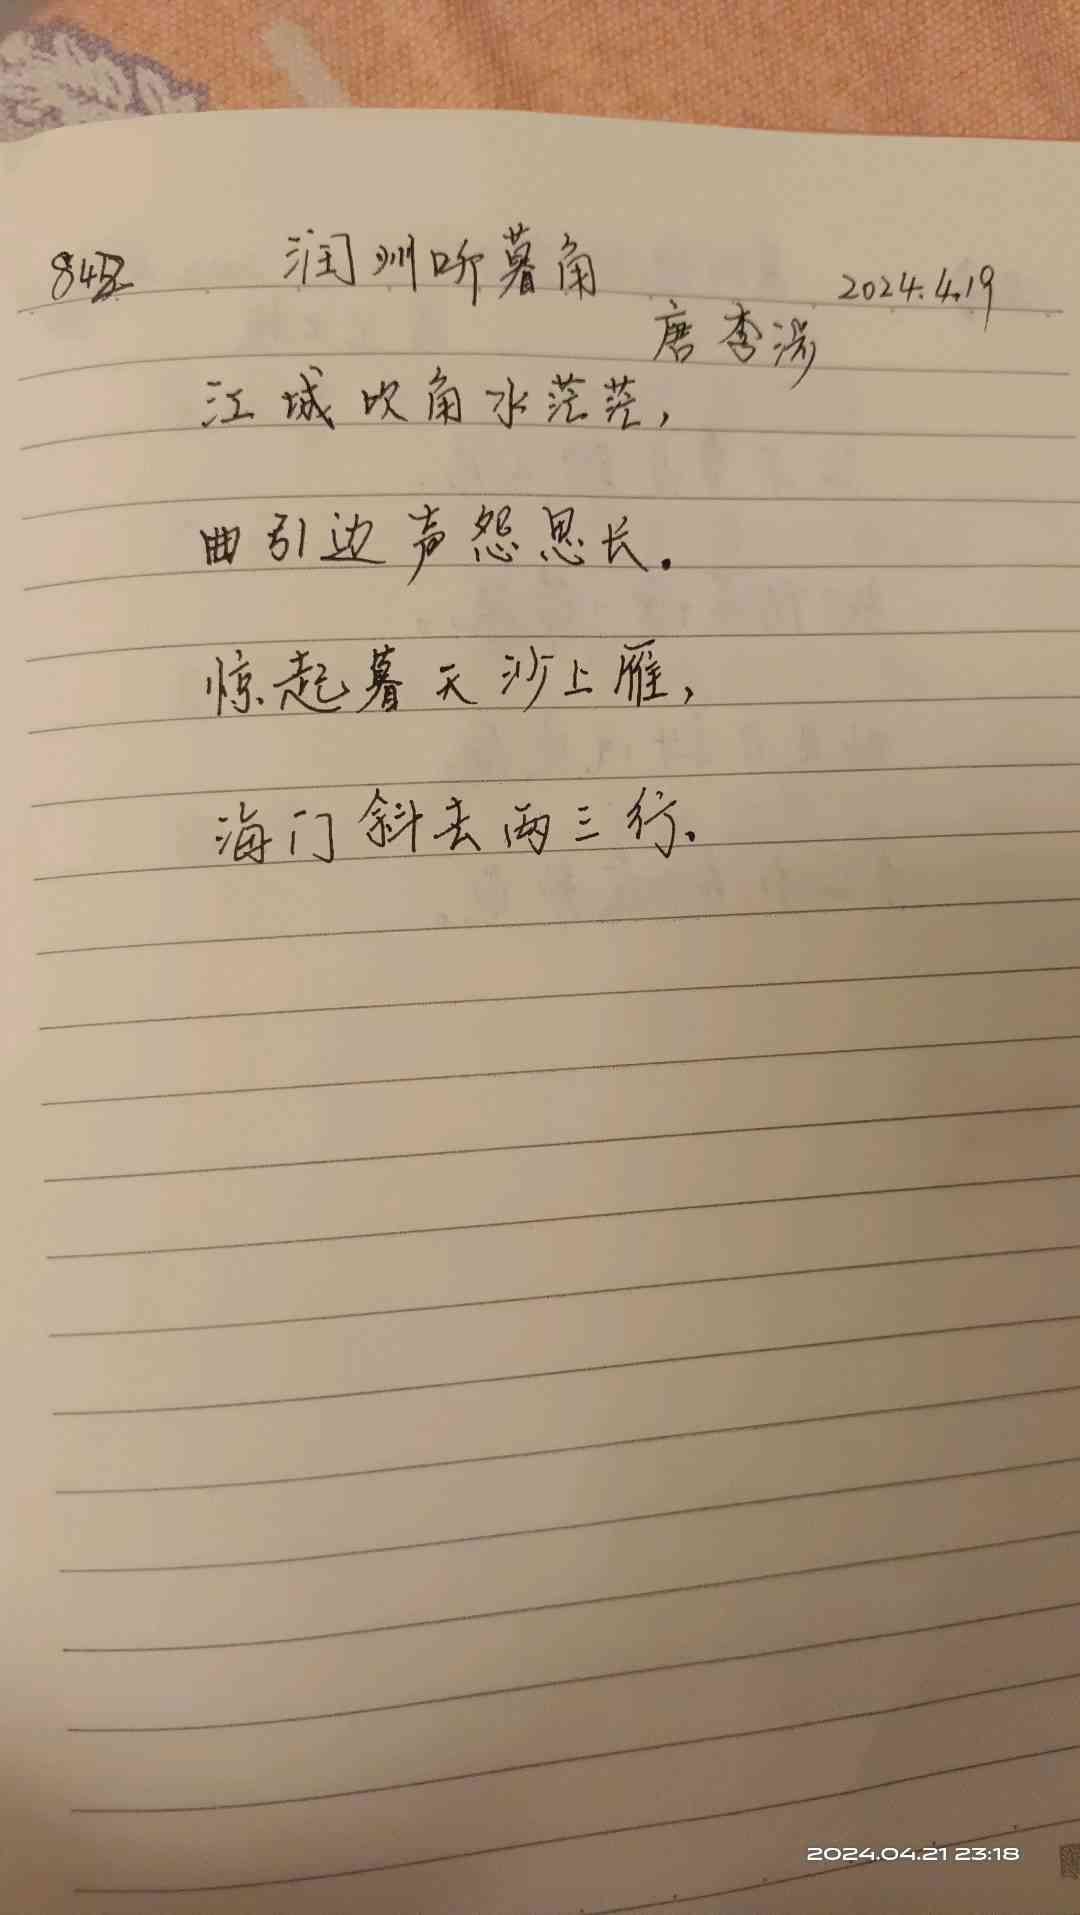 润州听暮角 2024.4.19
唐 李涉
江城吹角水茫茫,
曲引边声怨思长.
惊起暮天沙上雁,
海门斜去两三行.
2024.04.21 23:18